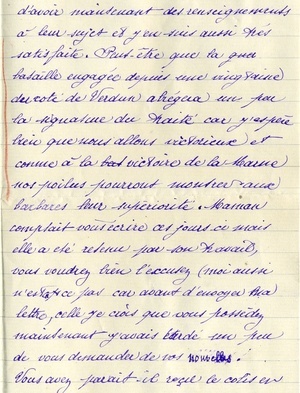 d'avoir maintenant des renseignements
à leur sujet et j'en suis aussi très
satisfaite. Peut-être que la
bataille engagée depuis une vingtaine
du coté de Verdun abrégera un peu
la signature du Traité car j'espère
bien que nous allons victorieux et
comme à la bas victoire de la Marne
nos poilus pourront montrer aux
barbares leur supériorité. Maman
comptait vous écrire ces jours ci mais
elle a été retenue par son travail,
vous voudrez bien l'excusez (moi aussi
n'est-ce pas car avant d'envoyer ma
lettre, celle je crois que vous possédez
maintenant j'avais tardé un peu
de vous demander de vos nouvelles.
Vous avez parait-il reçu le colis en